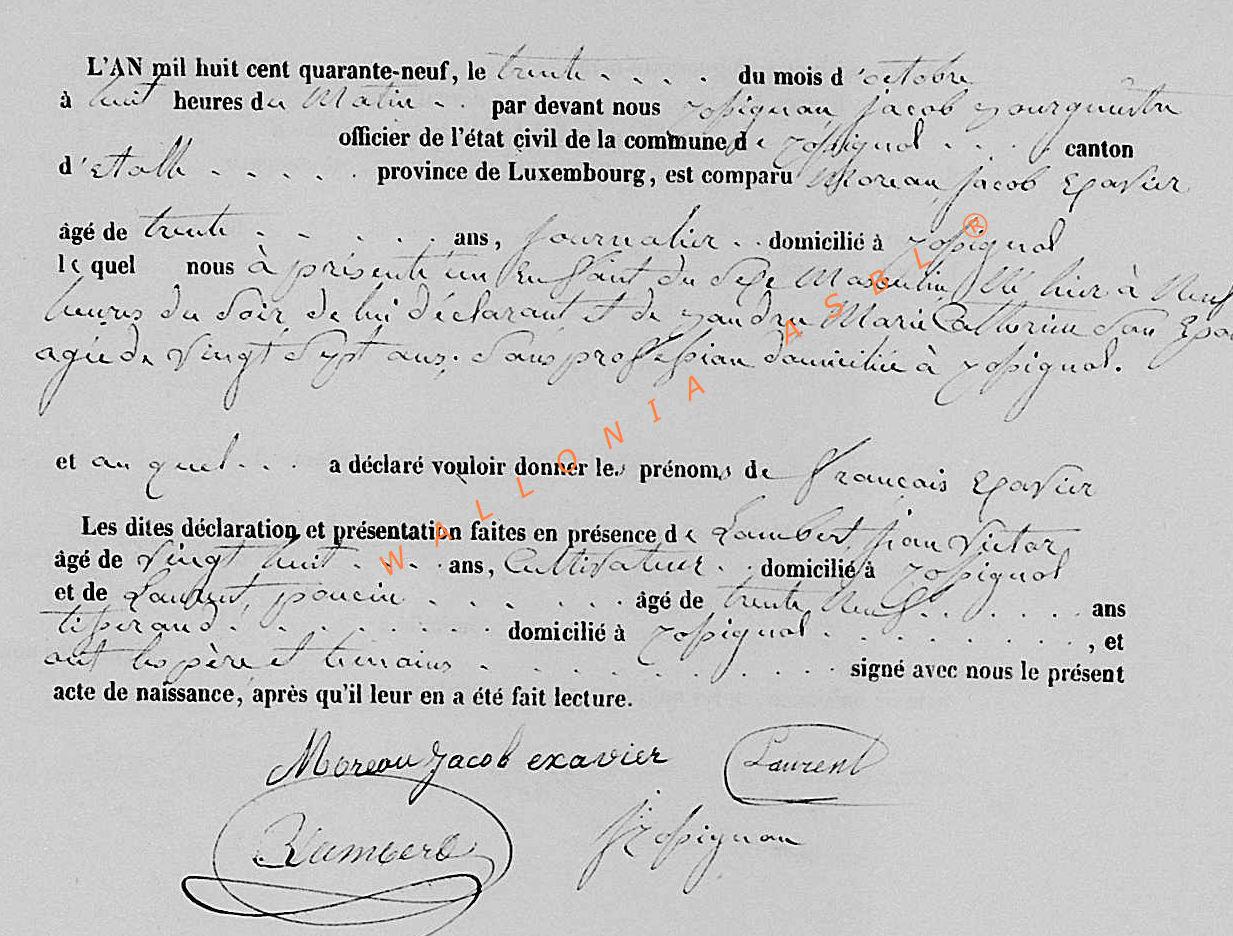 L'AN mil huit cent quarante-neuf, le trente . . . . du mois d'octobre
à huit heures du Matin . . par devant nous Rossignon, Jacob Bourguemestre
officier de l'état civil de la commune de Rossignol . . . canton
d'Etalle . . . . . province de Luxembourg, est comparu Moreau, Jacob Exavier
âgé de trente . . . . . ans, journalier . . domicilié à Rossignol
lequel nous à présenté un Enffant du Sexe Masculin, Né hier à Neuf
heures du Soir, de lui déclarant et de Marie Catherine Son
agée de Vingt Sept ans. Sans profession domiciliée à Rossignol.
et au quel . . . a déclaré vouloir donner les prénoms de François Exavier
Les dites déclaration et présentation faites en présence de Lambert, Jean Victor
âgé de Vingt huit . . . . ans, Cultivateur . . domicilié à Rossignol
et de Laurent, poncin . . . . . . âgé de trente Neuf . . . . . ans
tisserand . . . . . . . . domicilié à Rossignol . . . . . . . . , et
ont les père et temoins . . . . . . . . . . signé avec nous le présent
acte de naissance, après qu'il leur en a été fait lecture.
Moreau Jacob exavier Laurent
Rossignon
WALLONIA ASBL ®